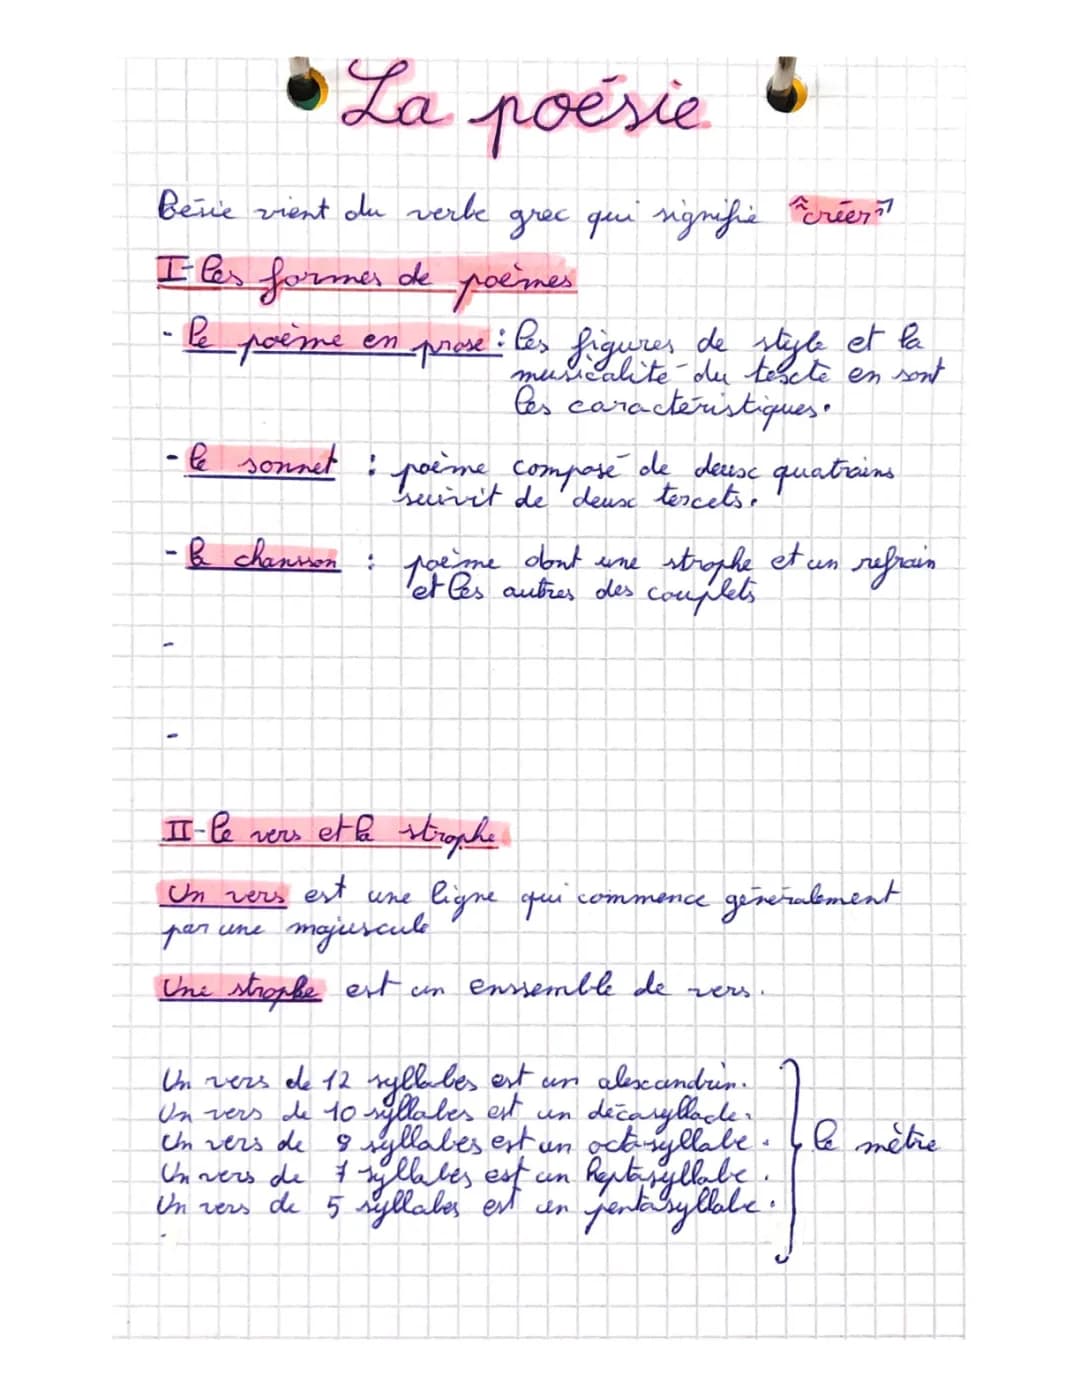 La poésie
Poésie vient du verbe grec qui signifie "créer"
I-Les formes de poèmes
- Le poème en prose : Les figures de style et la
musicalité du texte en sont
les caractéristiques.
- le sonnet : poème composé de deux quatrains
suivit de deux tercets.
- la chansson : poème dont une strophe et un refrain
et les autres des couplets
-
-
II-Le vers et la strophe
Un vers est une ligne qui commence généralement
par une majuscule
Une strophe est un enssemble de vers.
Un vers de 12 syllabes est un alexandrin.
Un vers de 10 syllabes est un décasyllade.
Un vers de 8 syllabes est un octasyllabe.
Un vers de 7 syllabes est un heptasyllabe.
Un vers de 5 syllabes est un pentasyllabe.
le mètre